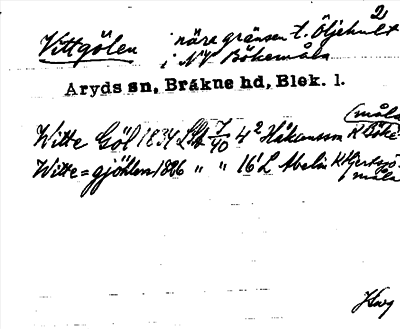 2
Vittgölen nära gränsen t. Öljehult
i NV Bökemåla
Aryds sn, Bräkne hd, Blek. l.
(måla
Witte Göl 1834 LSA 7/40 4² Håkansson K Böke-
Witte=gjöhlen 1826 " " 16' L Abelin K
måla